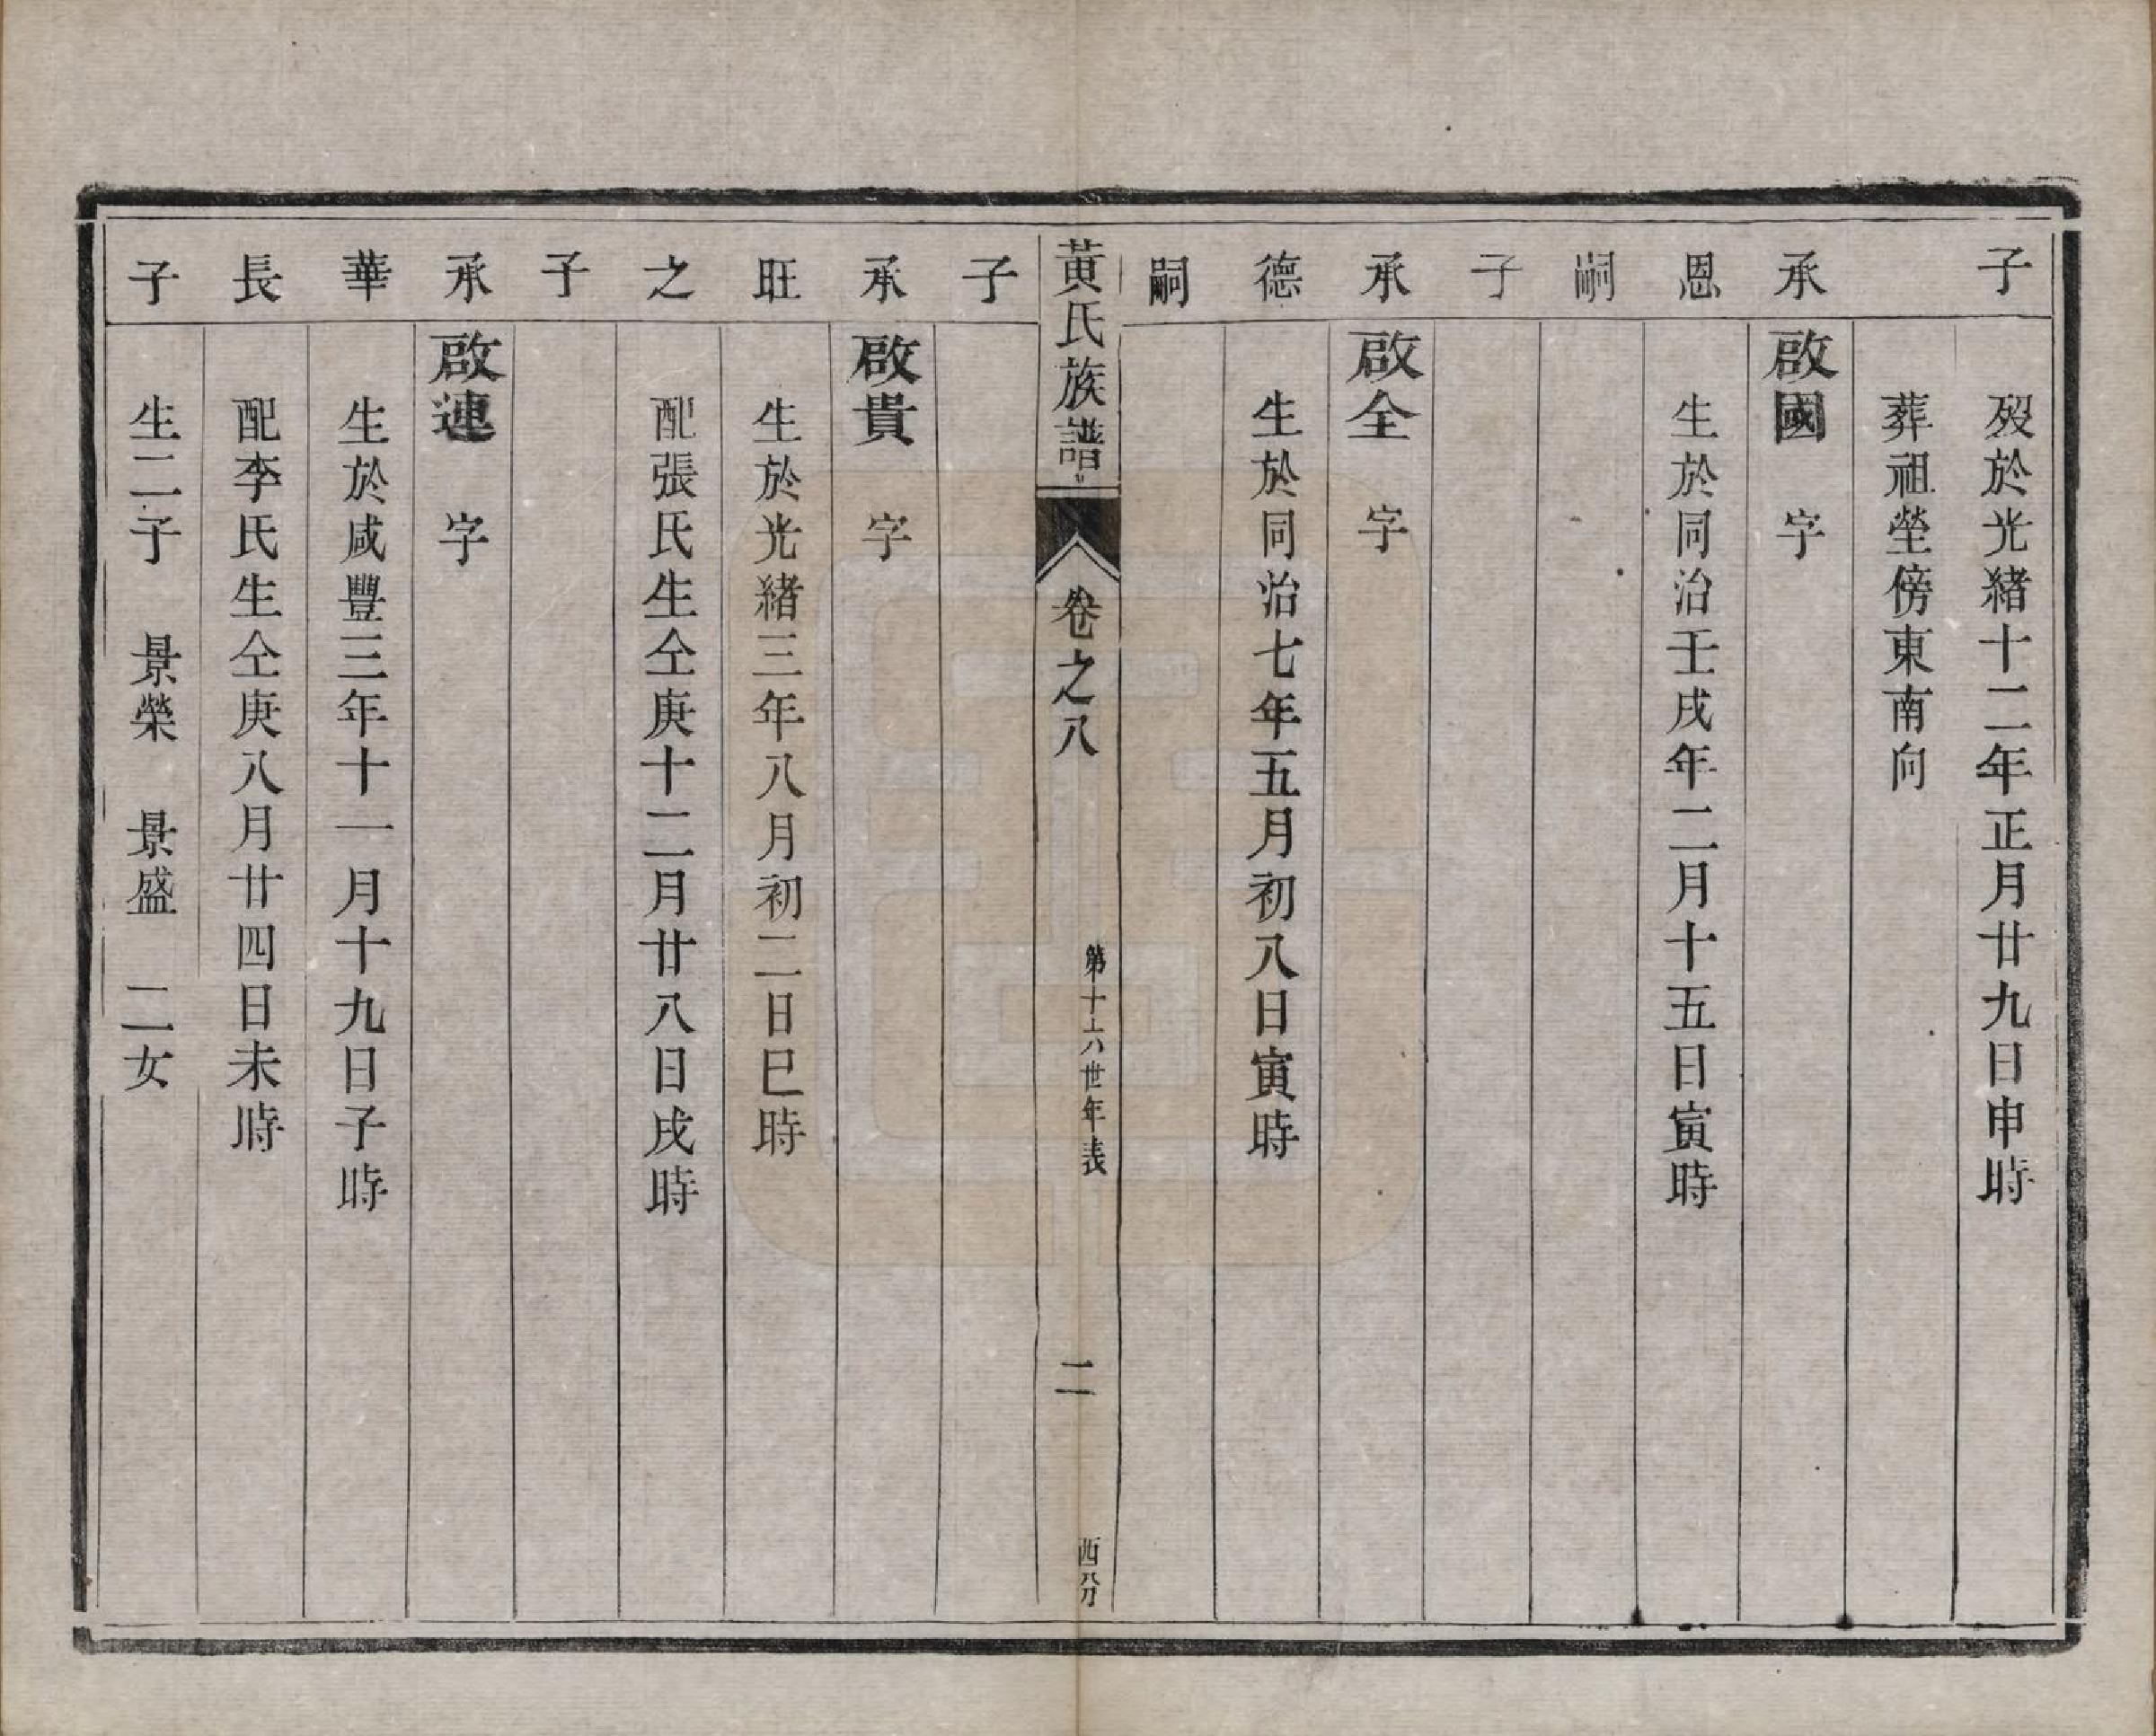 子　歿於光緒十二年正月廿九日申時
葬祖塋傍東南向
承　啟國　字
恩　生於同治壬戌年二月十五日寅時
嗣
子
承　啟全　字
德　生於同治七年五月初八日寅時
嗣
黃氏族譜　卷之八　第十六世年表　二　西分
子
承　啟貴　字
旺　生於光緒三年八月初二日巳時
之　配張氏生仝庚十二月廿八日戌時
子
承　啟連　字
華　生於咸豐三年十一月十九日子時
長　配李氏生仝庚八月廿四日未時
子　生二子　景榮　景盛　二女